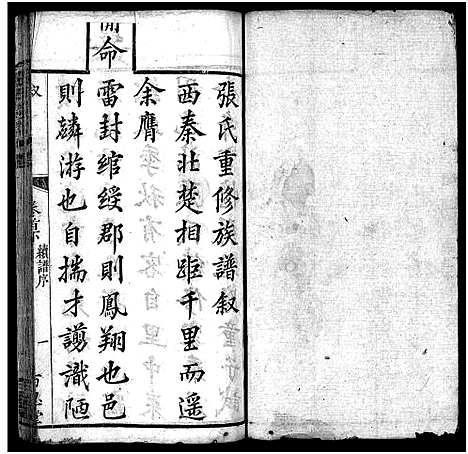 張氏重修族譜叙
西秦北楚相距千里而遥
余膺
簡命
雷封綰綬郡則鳳翔也邑
則麟游也自揣才譾識陋
叙
卷首
續譜序
一